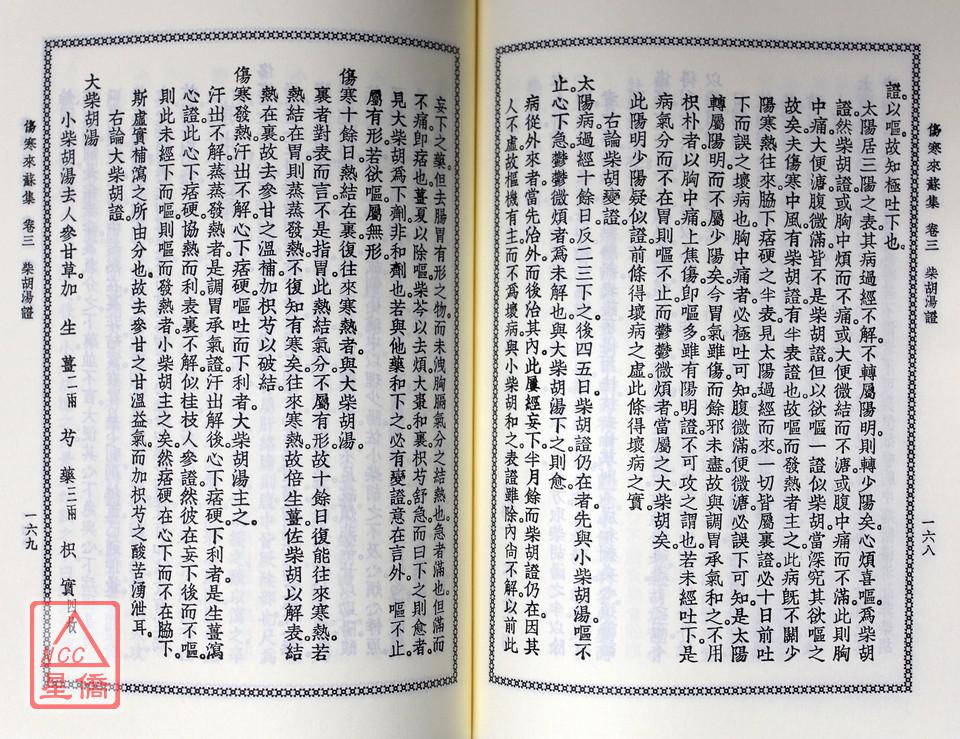 傷寒來蘇集 卷三 柴胡湯證 一六八
證。以嘔。故知極吐下也。
太陽居三陽之表。其病過經不解。不轉屬陽明。則轉少陽矣。心煩喜嘔。爲柴胡
證。然柴胡證。或胸中煩而不痛。或大便微結而不溏。或腹中痛而不滿。此則胸
中痛。大便溏。腹微滿。皆不是柴胡證。但以欲嘔一證似柴胡。當深究其欲嘔之
故矣。夫傷寒中風。有柴胡證。有半表證也。故嘔而發熱者主之。此病旣不關少
陽寒熱往來。脇下痞硬之半表。見太陽過經而來。一切皆屬裏證。必十日前吐
下而誤之壞病也。胸中痛者。必極吐可知。腹微滿。便微溏。必誤下可知。是太陽
轉屬陽明。而不屬少陽矣。今胃氣雖傷。而餘邪未盡。故與調胃承氣和之。不用
枳朴者。以胸中痛。上焦傷。即嘔多。雖有陽明證。不可攻之謂也。若未經吐下。是
病氣分而不在胃。則嘔不止而鬱鬱微煩者。當屬之大柴胡矣。
此陽明少陽疑似證。前條得壞病之虛。此條得壞病之實。
右論柴胡變證
太陽病。過經十餘日。反二三下之。後四五日。柴胡證仍在者。先與小柴胡湯。嘔不
止。心下急。鬱鬱微煩者。爲未解也。與大柴胡湯下之則愈。
病從外來者。當先治外而後治其內。此屢經妄下。半月餘而柴胡證仍在。因其
人不虛。故樞機有主而不爲壞病。與小柴胡和之。表證雖除。內尙不解。以前此
妄下之藥。但去腸胃有形之物。而未洩胸膈氣分之結熱也。急者滿也。但滿而
不痛。即痞也。薑夏以除嘔。柴芩以去煩。大棗和裏。枳芍舒急。而曰下之則愈者。
見大柴胡爲下劑。非和劑也。若與他藥和下之。必有變證。意在言外。嘔不止。
屬有形。若欲嘔。屬無形
傷寒十餘日。熱結在裏。復往來寒熱者。與大柴胡湯。
裏者對表而言。不是指胃。此熱結氣分。不屬有形。故十餘日復能往來寒熱。若
熱結在胃。則蒸蒸發熱。不復知有寒矣。往來寒熱。故倍生薑。佐柴胡以解表。結
熱在裏。故去參甘之溫補。加枳芍以破結。
傷寒發熱。汗出不解。心下痞硬。嘔吐而下利者。大柴胡湯主之。
汗出不解。蒸蒸發熱者。是調胃承氣證。汗出解後。心下痞硬下利者。是生薑瀉
心證。此心下痞硬。協熱而利。表裏不解。似桂枝人參證。然彼在妄下後而不嘔。
則此未經下而嘔。則嘔而發熱者。小柴胡主之矣。然痞硬在心下而不在脇下。
斯虛實補瀉之所由分也。故去參甘之甘溫益氣。而加枳芍之酸苦湧泄耳。
右論大柴胡證。
大柴胡湯
小柴胡湯去人參甘草。加 生薑二兩 芍藥三兩 枳實四枚
傷寒來蘇集 卷三 柴胡湯證 一六九
ICC
星僑